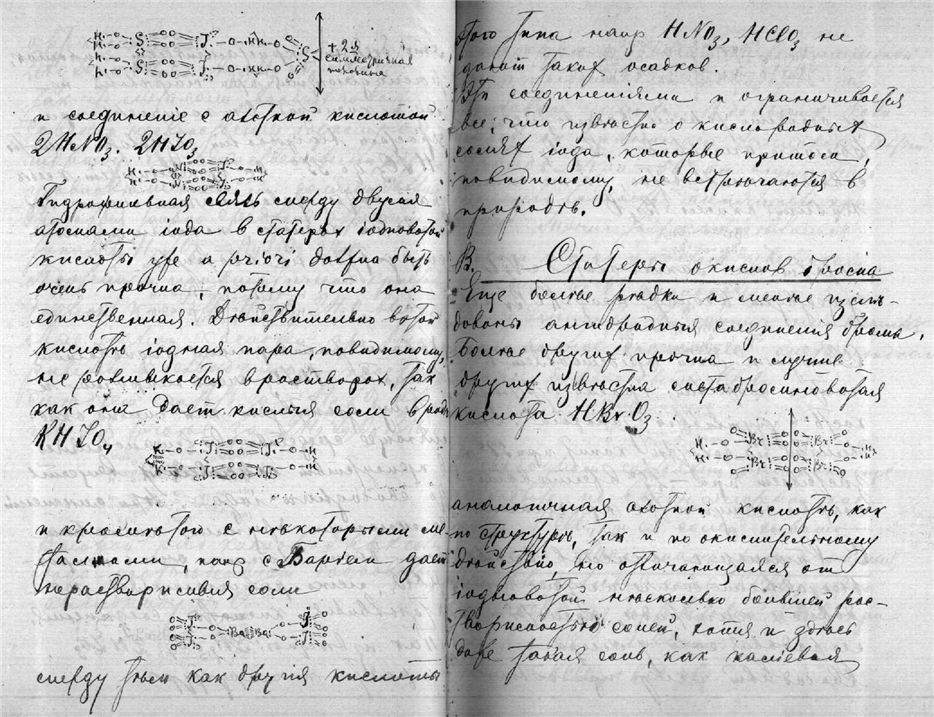 + 2й
симметричная
половина
и соединение с азотной кислотой
2HNO3. 2HJO3
Гидрофильная связь между двумя
атомами iода в статерах iодноватой
кислоты уже a priori должна быть
очень прочна, потому что она
единственная. Действительно в этой
кислоте iодная пара, повидимому,
не размыкается в растворах, так
как она дает кислыя соли вроде
KHJO4
и кроме того с некоторыми ме-
таллами, напр с Барием дает
нерастворимыя соли
между тем как другiя кислоты
этого типа напр HNO3, HClO3 не
дают таких осадков
Эти соединенiями и ограничивается
все, что известно о кислородных
солях iода, которые притом,
повидимому, не встречаются в
природе.
В. Статеры окислов брома
Еще более редки и менее изсле-
дованы ангидридныя соединенiя брома.
Более других прочна и лучше
других известна метабромноватая
кислота HBrO3
аналогичная азотной кислоте, как
по структуре, так и по окислительному
действiю, но отличающаяся от
iодноватой несколько большей рас-
творимостью солей, хотя и здесь
даже такая соль, как калiевая